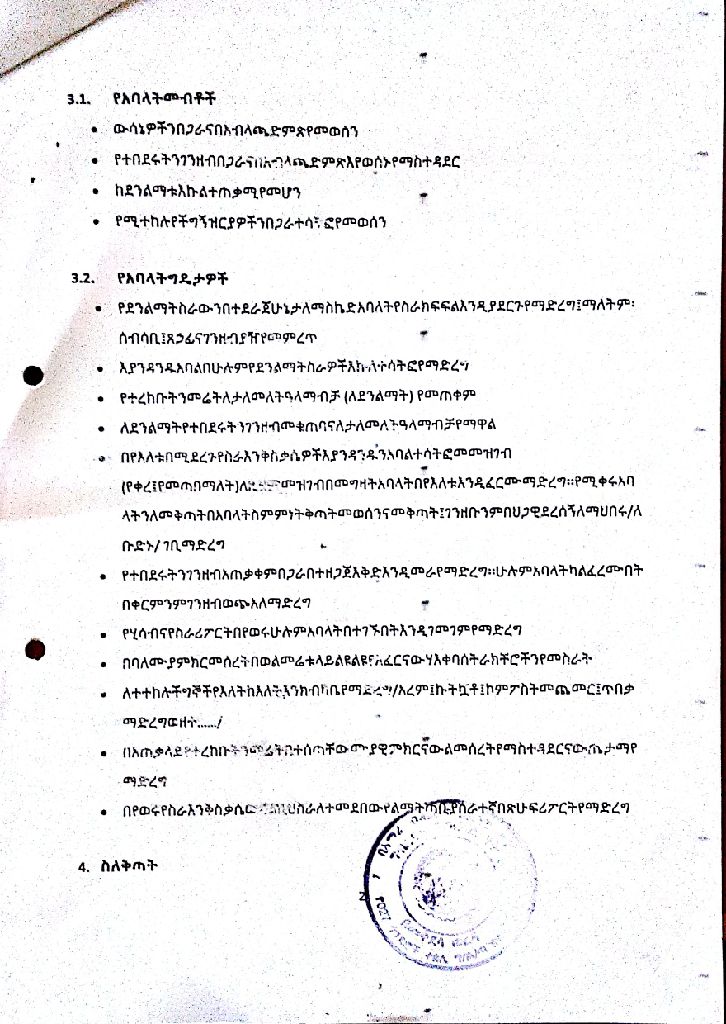 3.1. የአባላትመብቶች
• ውሳኔዎችንበጋራናበአብላጫድምጽየመወሰን
• የተበደሩትንገንዘብበጋራናበአብላጫድምጽእየወሰኑየማስተዳደር
• ከደንልማቱእኩልተጠቃሚየመሆን
• የሚተከሉየችግኝዝርያዎችንበጋራተሳትፎየመወሰን
3.2. የአባላትግዴታዎች
• የደንልማትስራውንበተደራጀሁኔታለማስኬድአባላትየስራክፍፍልእንዲያደርጉየማድረግ፤ማለትም፡
ሰብሳቢ፤ጸኃፊናገንዘብያዥየመምረጥ
• እያንዳንዱአባልበሁሉምየደንልማትስራዎችእኩልተሳትፎየማድረግ
• የተረከቡትንመሬትለታለመለትዓላማብቻ (ለደንልማት) የመጠቀም
• ለደንልማትየተበደሩትንገንዘብመቁጠባናለታለመለትዓላማብቻየማዋል
• በየእለቱበሚደረጉየስራእንቅስቃሴዎችእያንዳንዱንአባልተሳትፎመመዝገብ
(የቀረ፤የመጣበማለት)ለዚህምመዝገብበመግዛትአባላትበየእለቱእንዲፈርሙማድረግ።የሚቀሩአባ
ላትንለመቅጣትበአባላትስምምነትቅጣትመወሰንናመቅጣት፤ገንዘቡንምበህጋዊደረሰኝለማህበሩ/ለ
ቡድኑ/ ገቢማድረግ
• የተበደሩትንገንዘብአጠቃቀምበጋራበተዘጋጀእቅድእንዲመራየማድረግ።ሁሉምአባላትካልፈረሙበት
በቀርምንምገንዘብወጭአለማድረግ
• የሂሳብናየስራሪፖርትበየወሩሁሉምአባላትበተገኙበትእንዲገመገምየማድረግ
• በባለሙያምክርመሰረትበወልመሬቱላይልዩልዩየአፈርናውሃእቀባስትራክቸሮችንየመስራት
• ለተተከሉችግኞችየእለትከእለትእንክብካቤየማድረግ/አረም፤ኩትኳቶ፤ኮምፖስትመጨመር፤ጥበቃ
ማድረግወዘተ....../
• በአጠቃላይየተረከቡትንመሬትበተሰጣቸውሙያዊምክርናውልመሰረትየማስተዳደርናውጤታማየ
ማድረግ
• በየወሩየስራእንቅስቃሴውንለዚህስራለተመደበውየልማትጣቢያሰራተኛበጽሁፍሪፖርትየማድረግ
4. ስለቅጣት
2